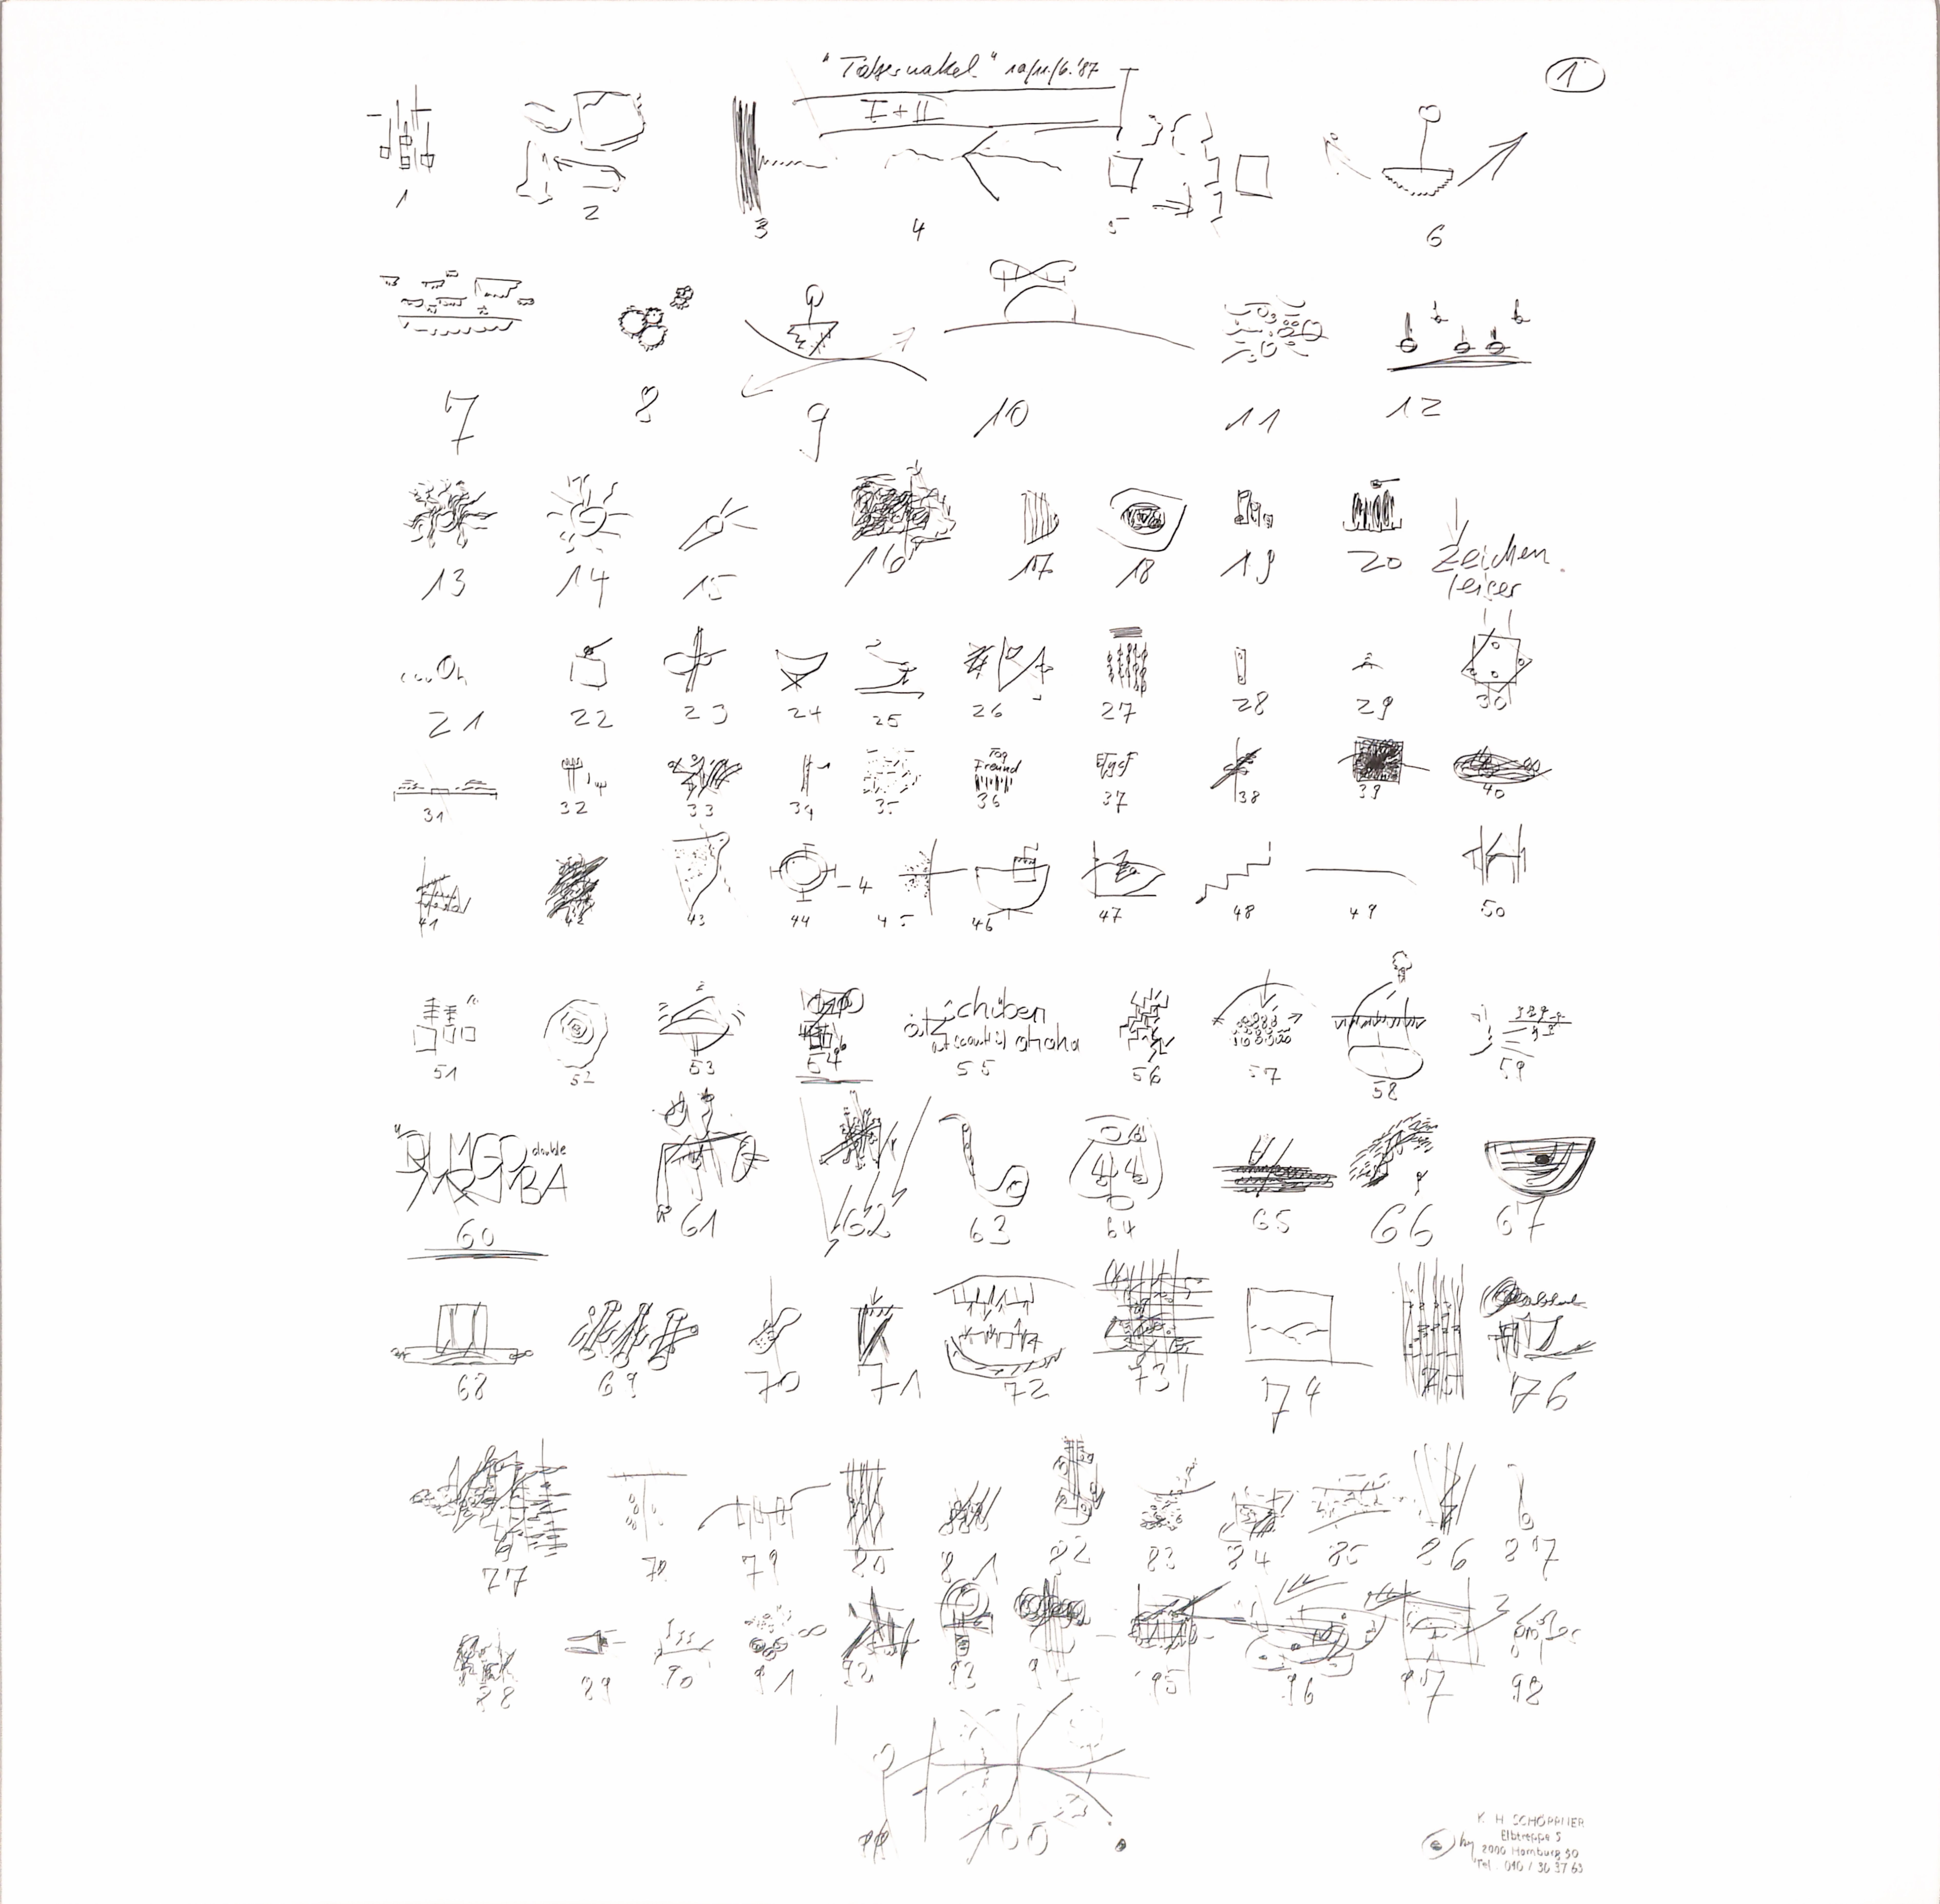 "Tabernakel" 10/11/6.'87
1
I + II
1 2 3 4 5 6
7 8 9 10 11 12
13 14 15 16 17 18 19 20 Zeichen
leiser
21 22 23 24 25 26 27 28 29 30
Top
Freund
31 32 33 34 35 36 37 38 39 40
41 42 43 44 -4 45 46 47 48 49 50
51 52 53 54 55 56 57 58 59
double
60 61 62 63 64 65 66 67
44
68 69 70 71 72 73 74 75 76
77 78 79 80 81 82 83 84 85 86 87
88 89 90 91 92 93 9 95 96 97 98
99 100
K. H. SCHÖPPNER
Elbtreppe 5
by 2000 Hamburg 50
Tel. 040 / 30 37 63